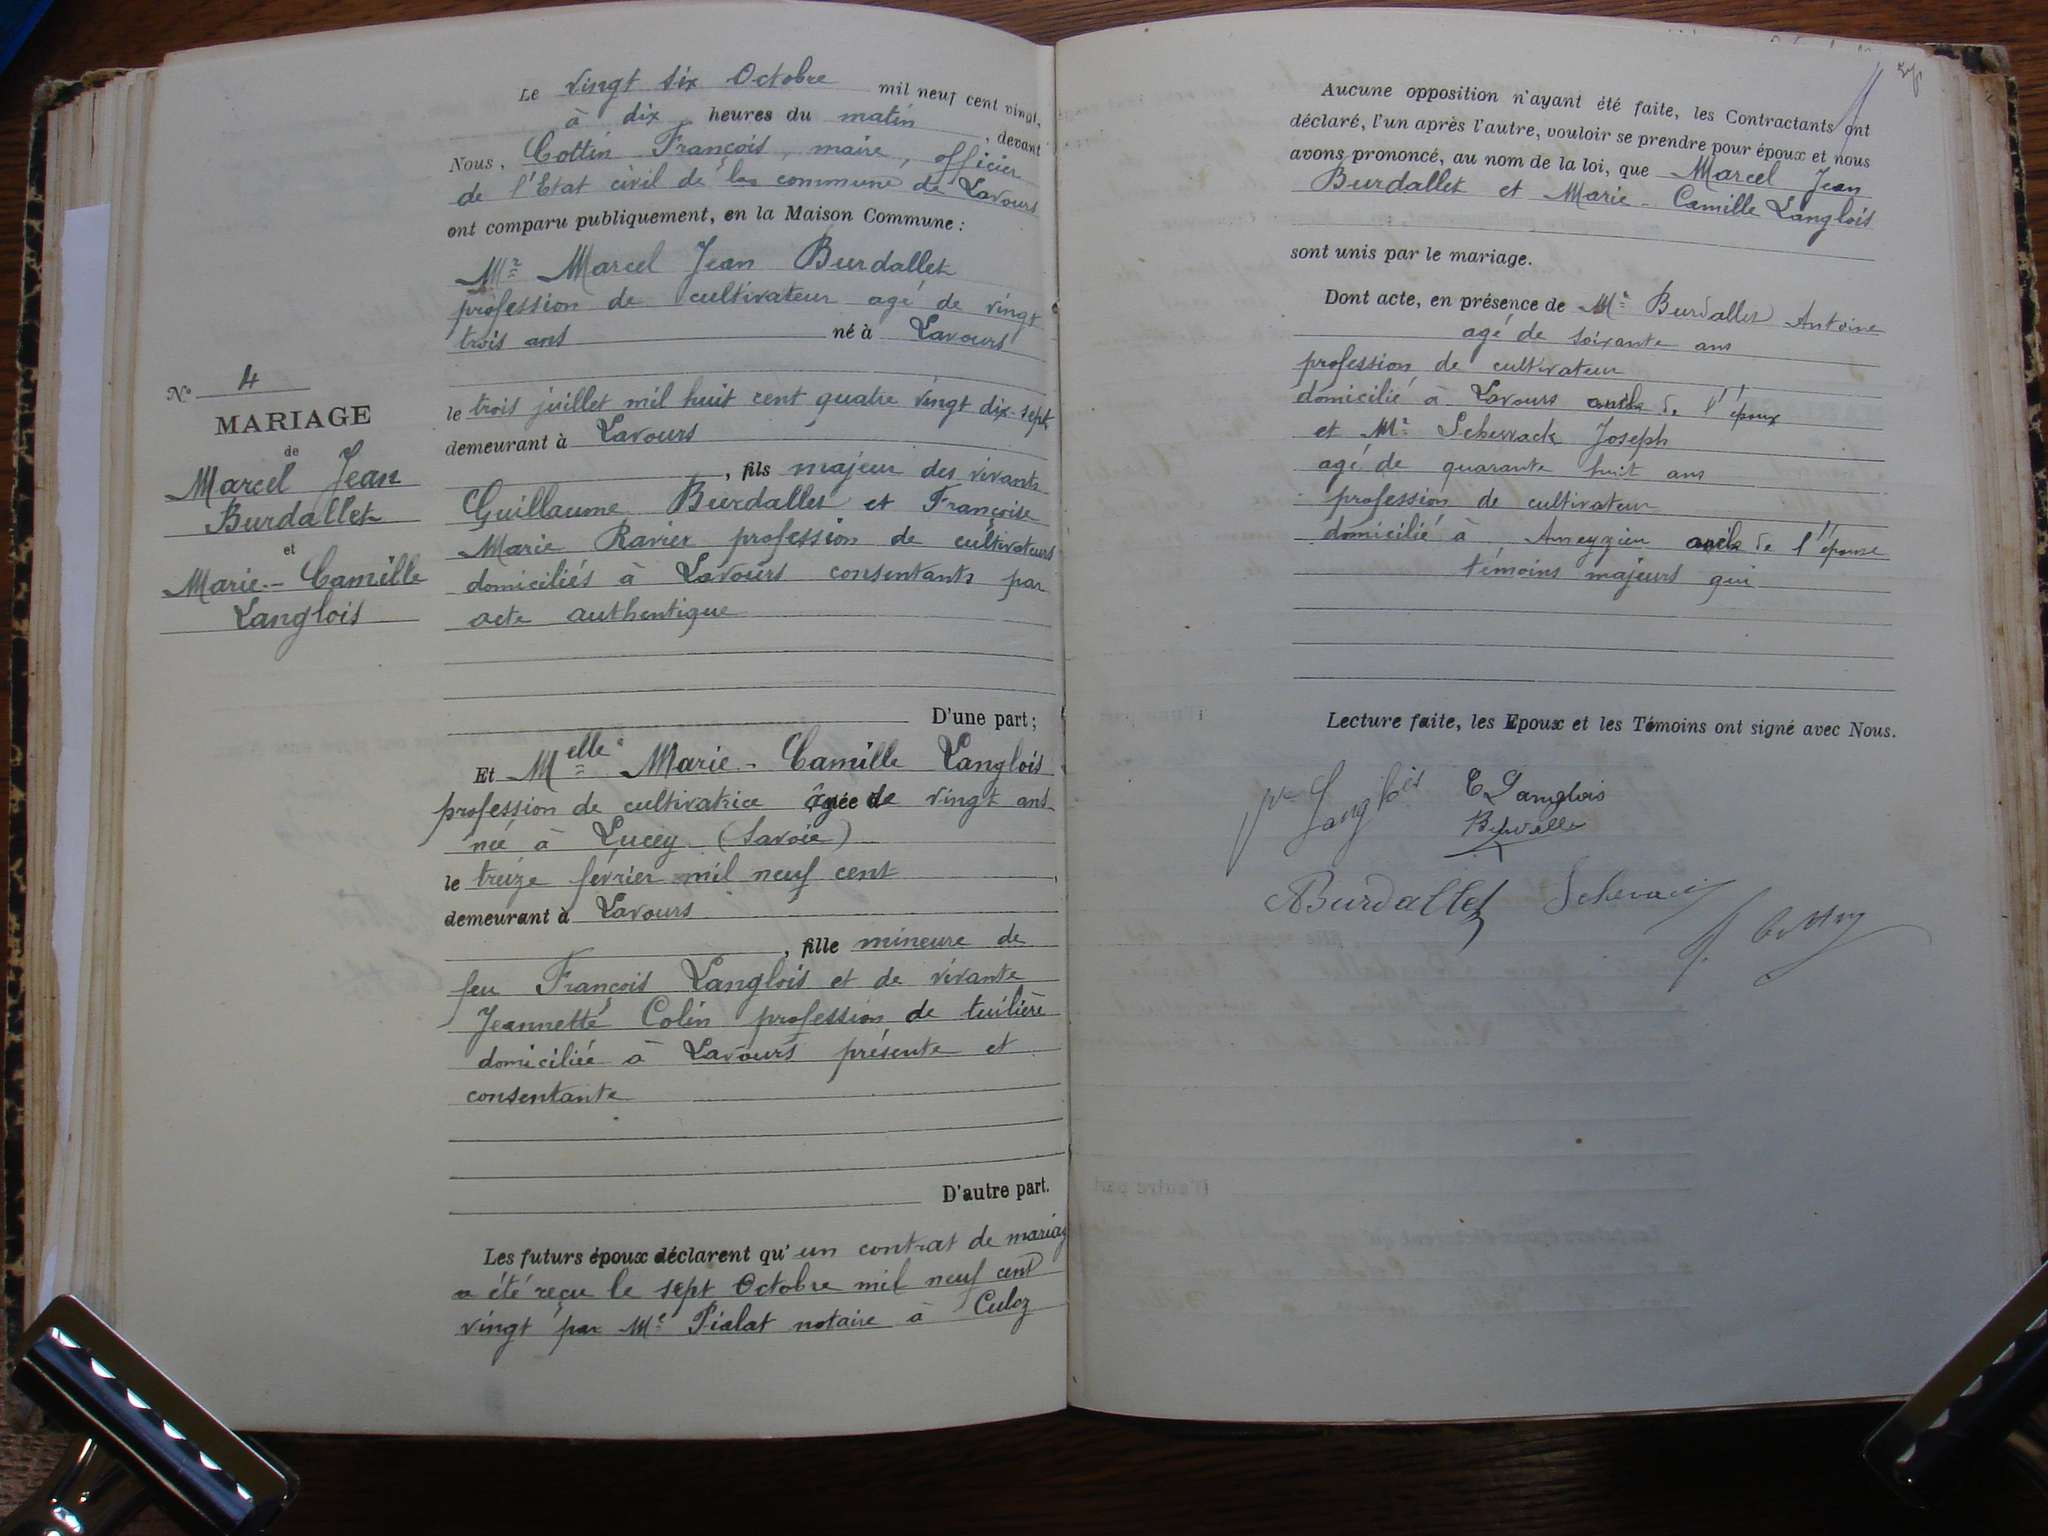 Le vingt six Octobre mil neuf cent vingt,
à dix heures du matin, devant
Nous, Cottin François, maire, officier
de l'Etat civil de la commune de Lavours
ont comparu publiquement, en la Maison Commune :
Mr Marcel Jean Burdallet
profession de cultivateur agé de vingt
trois ans né à Lavours
le trois juillet mil huit cent quatre vingt dix-sept
demeurant à Lavours
, fils majeur des vivants
Guillaume Burdallet et Françoise
Marie Ravier profession de cultivateurs
domiciliés à Lavours consentants par
acte authentique
D'une part ;
Et Melle Marie-Camille Langlois
profession de cultivatrice âgée de vingt ans
née à Lucey (Savoie)
le treize février mil neuf cent
demeurant à Lavours
, fille mineure de
feu François Langlois et de vivante
Jeannette Colin profession de tuilière
domiciliée à Lavours présente et
consentante
D'autre part.
Les futurs époux déclarent qu'un contrat de mariag
a été reçu le sept Octobre mil neuf cent
vingt par Me Pialat notaire à Culoz
No 4
MARIAGE
de
Marcel Jean
Burdallet
et
Marie-Camille
Langlois
Aucune opposition n'ayant été faite, les Contractants ont
déclaré, l'un après l'autre, vouloir se prendre pour époux et nous
avons prononcé, au nom de la loi, que Marcel Jean
Burdallet et Marie-Camille Langlois
sont unis par le mariage.
Dont acte, en présence de Mr Burdallet Antoine
agé de soixante ans
profession de cultivateur
domicilié à Lavours oncle de l'époux
et Mr Joseph
agé de quarante huit ans
profession de cultivateur
domicilié à Ameyzieu oncle de l'épouse
témoins majeurs qui
Lecture faite, les Epoux et les Témoins ont signé avec Nous.
Ve Langlois C Langlois
Burdallet